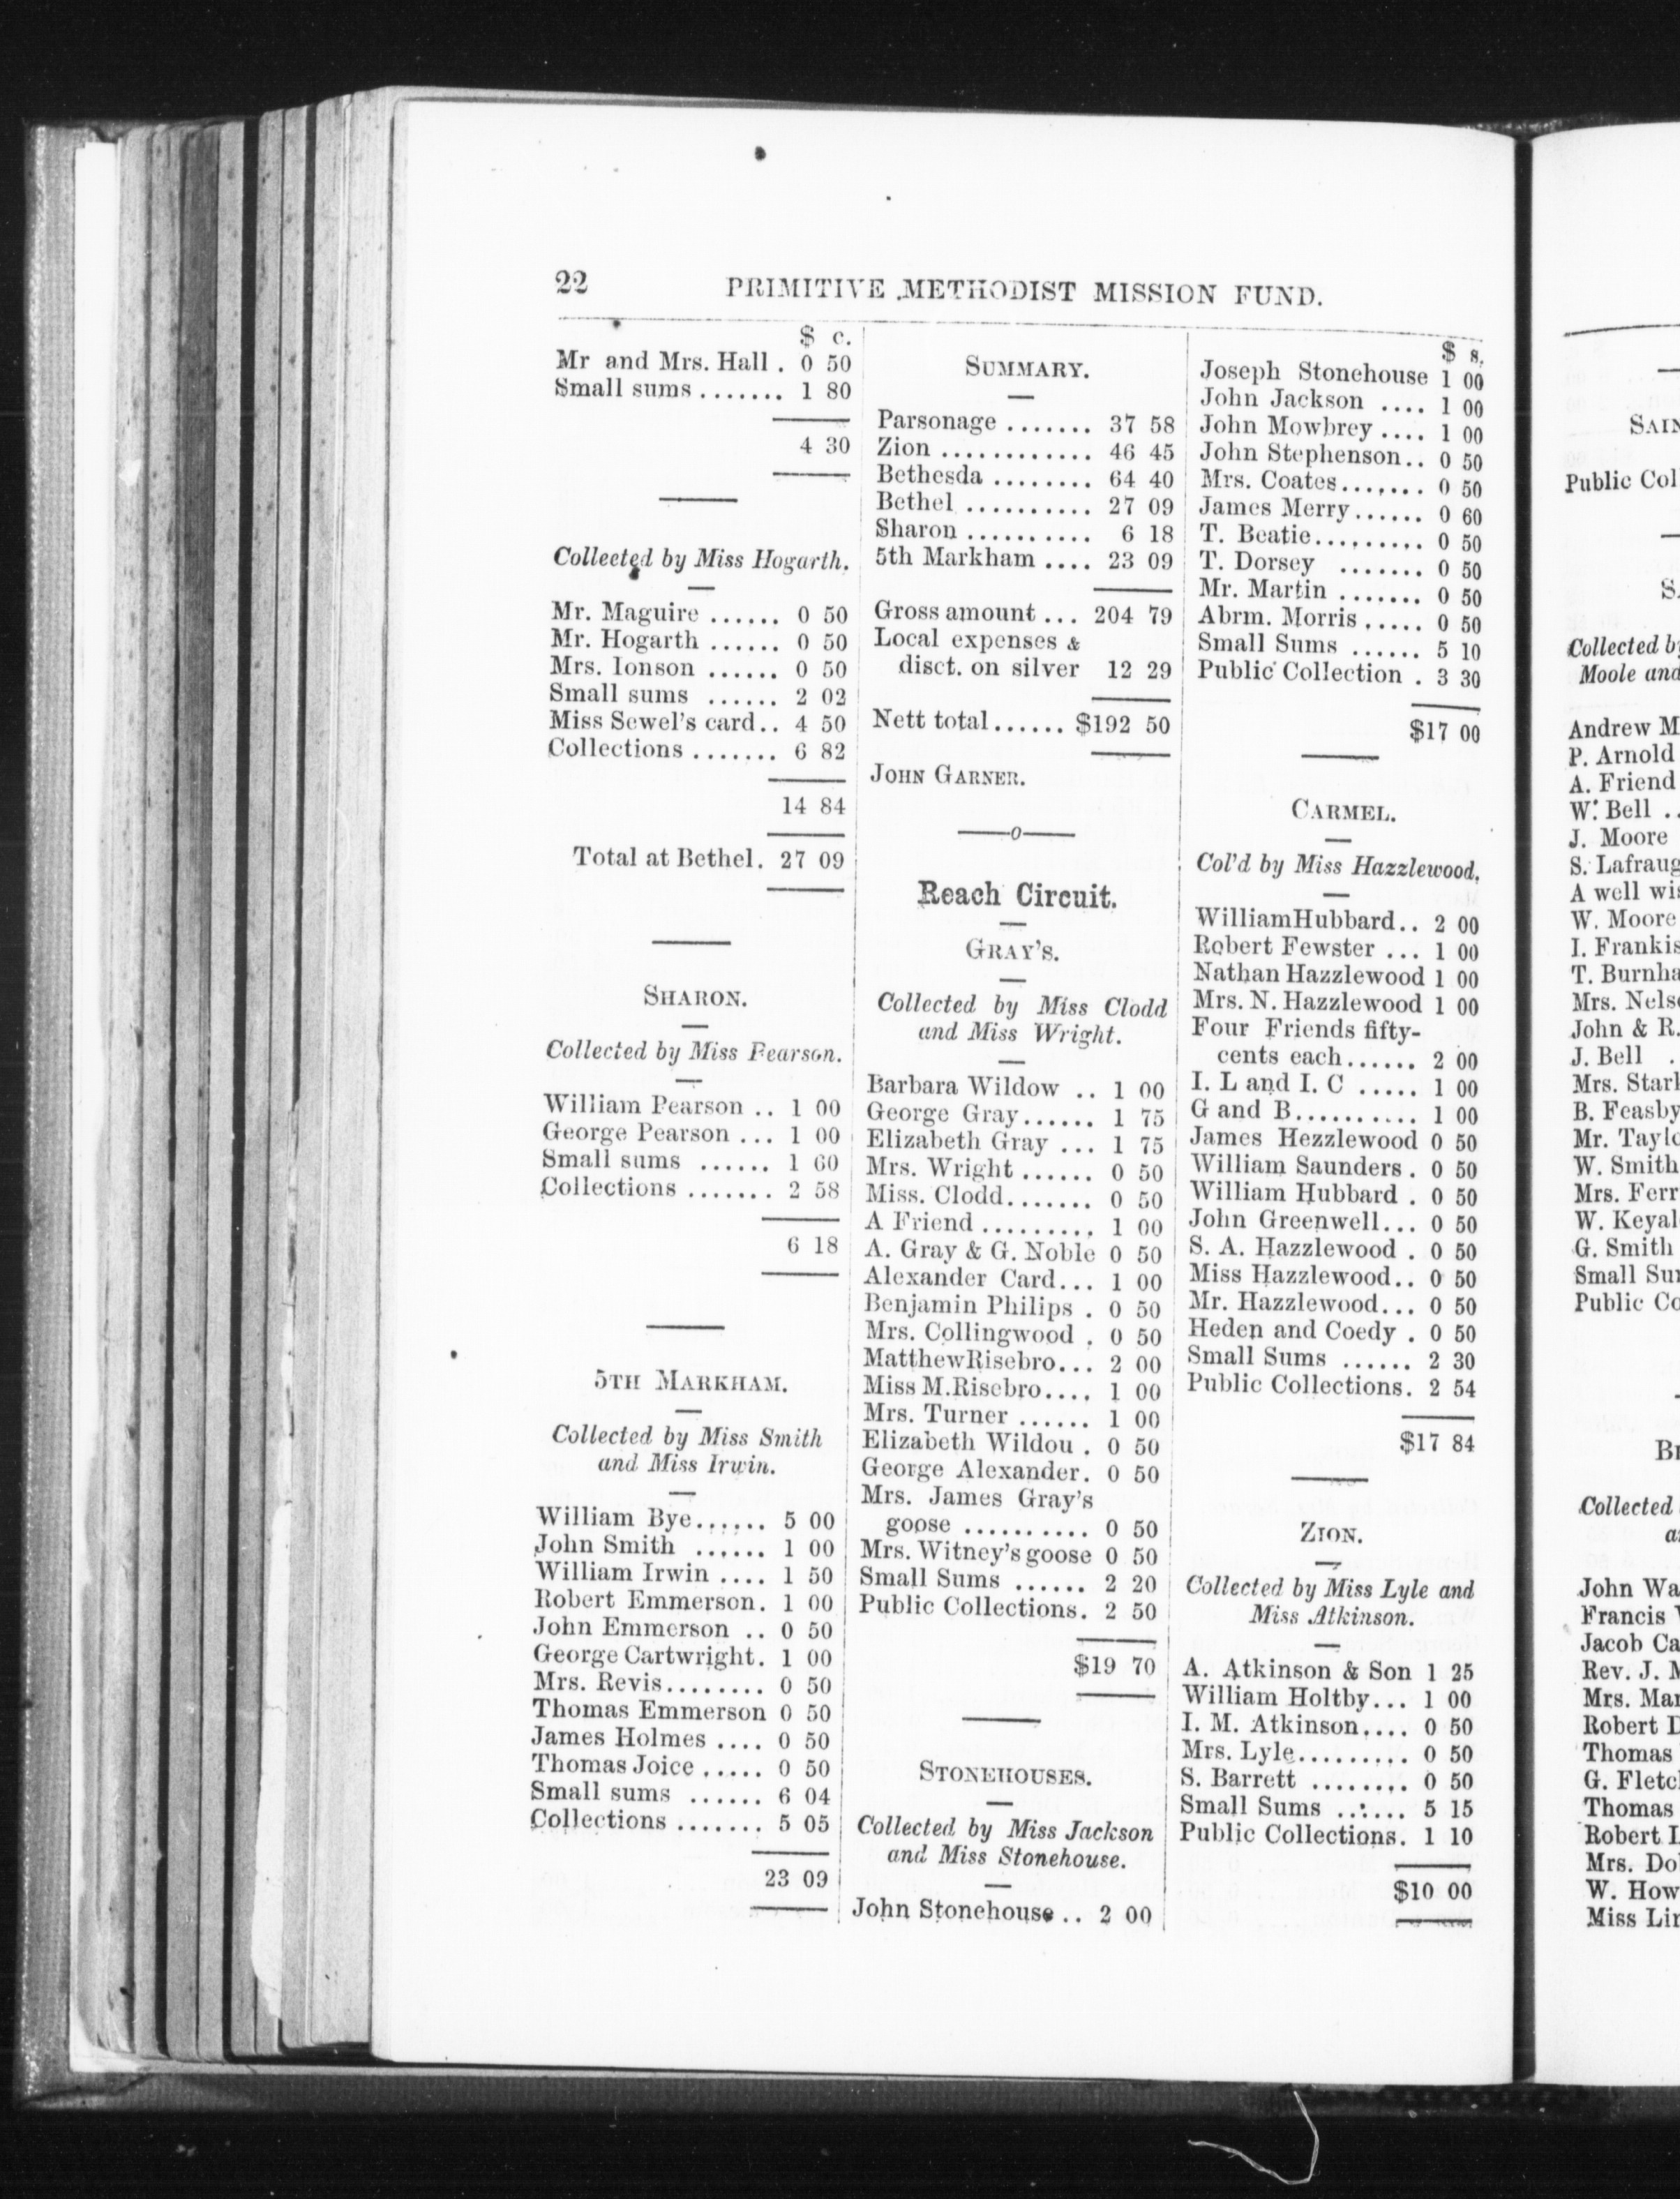 22
PRIMITIVE METHODIST MISSION FUND.
$ c.
Mr and Mrs. Hall . 0 50
Small sums ....... 1 80
4 30
Collected by Miss Hogarth.
Mr. Maguire ...... 0 50
Mr. Hogarth ...... 0 50
Mrs. Ionson ...... 0 50
Small sums ...... 2 02
Miss Sewel's card.. 4 50
Collections ....... 6 82
14 84
Total at Bethel. 27 09
SHARON.
Collected by Miss Pearson.
William Pearson .. 1 00
George Pearson ... 1 00
Small sums ...... 1 60
Collections ....... 2 58
6 18
5TH MARKHAM.
Collected by Miss Smith
and Miss Irwin.
William Bye...... 5 00
John Smith ...... 1 00
William Irwin .... 1 50
Robert Emmerson. 1 00
John Emmerson .. 0 50
George Cartwright. 1 00
Mrs. Revis........ 0 50
Thomas Emmerson 0 50
James Holmes .... 0 50
Thomas Joice ..... 0 50
Small sums ...... 6 04
Collections ....... 5 05
23 09
SUMMARY.
Parsonage ....... 37 58
Zion ............ 46 45
Bethesda ........ 64 40
Bethel .......... 27 09
Sharon .......... 6 18
5th Markham .... 23 09
Gross amount ... 204 79
Local expenses &
disct. on silver 12 29
Nett total...... $192 50
JOHN GARNER.
o
Reach Circuit.
GRAY'S.
Collected by Miss Clodd
and Miss Wright.
Barbara Wildow .. 1 00
George Gray...... 1 75
Elizabeth Gray ... 1 75
Mrs. Wright ...... 0 50
Miss. Clodd....... 0 50
A Friend .......... 1 00
A. Gray & G. Noble 0 50
Alexander Card... 1 00
Benjamin Philips . 0 50
Mrs. Collingwood . 0 50
MatthewRisebro... 2 00
Miss M.Risebro.... 1 00
Mrs. Turner ...... 1 00
Elizabeth Wildou . 0 50
George Alexander. 0 50
Mrs. James Gray's
goose .......... 0 50
Mrs. Witney's goose 0 50
Small Sums ...... 2 20
Public Collections. 2 50
$19 70
STONEHOUSES.
Collected by Miss Jackson
and Miss Stonehouse.
John Stonehouse .. 2 00
$ s.
Joseph Stonehouse 1 00
John Jackson .... 1 00
John Mowbrey .... 1 00
John Stephenson.. 0 50
Mrs. Coates....... 0 50
James Merry...... 0 60
T. Beatie......... 0 50
T. Dorsey ....... 0 50
Mr. Martin ....... 0 50
Abrm. Morris ..... 0 50
Small Sums ...... 5 10
Public Collection . 3 30
$17 00
CARMEL.
Col'd by Miss Hazzlewood.
WilliamHubbard.. 2 00
Robert Fewster ... 1 00
Nathan Hazzlewood 1 00
Mrs. N. Hazzlewood 1 00
Four Friends fifty-
cents each...... 2 00
I. L and I. C ..... 1 00
G and B.......... 1 00
James Hezzlewood 0 50
William Saunders . 0 50
William Hubbard . 0 50
John Greenwell... 0 50
S. A. Hazzlewood . 0 50
Miss Hazzlewood.. 0 50
Mr. Hazzlewood... 0 50
Heden and Coedy . 0 50
Small Sums ...... 2 30
Public Collections. 2 54
$17 84
ZION.
Collected by Miss Lyle and
Miss Atkinson.
A. Atkinson & Son 1 25
William Holtby... 1 00
I. M. Atkinson.... 0 50
Mrs. Lyle......... 0 50
S. Barrett ........ 0 50
Small Sums ...... 5 15
Public Collections. 1 10
$10 00
Public
Collected
Moole and
Andrew
P. Arnold
A. Friend
W. Bell ..
J. Moore
S.
A well
W. Moore
I.
T.
Mrs.
John & R.
J. Bell .
Mrs.
B. Feasby
Mr.
W. Smith
Mrs.
W.
G. Smith
Small
Public
Collected
John
Francis
Jacob
Rev. J.
Mrs.
Robert
Thomas
G.
Thomas
Robert
Mrs.
W.
Miss